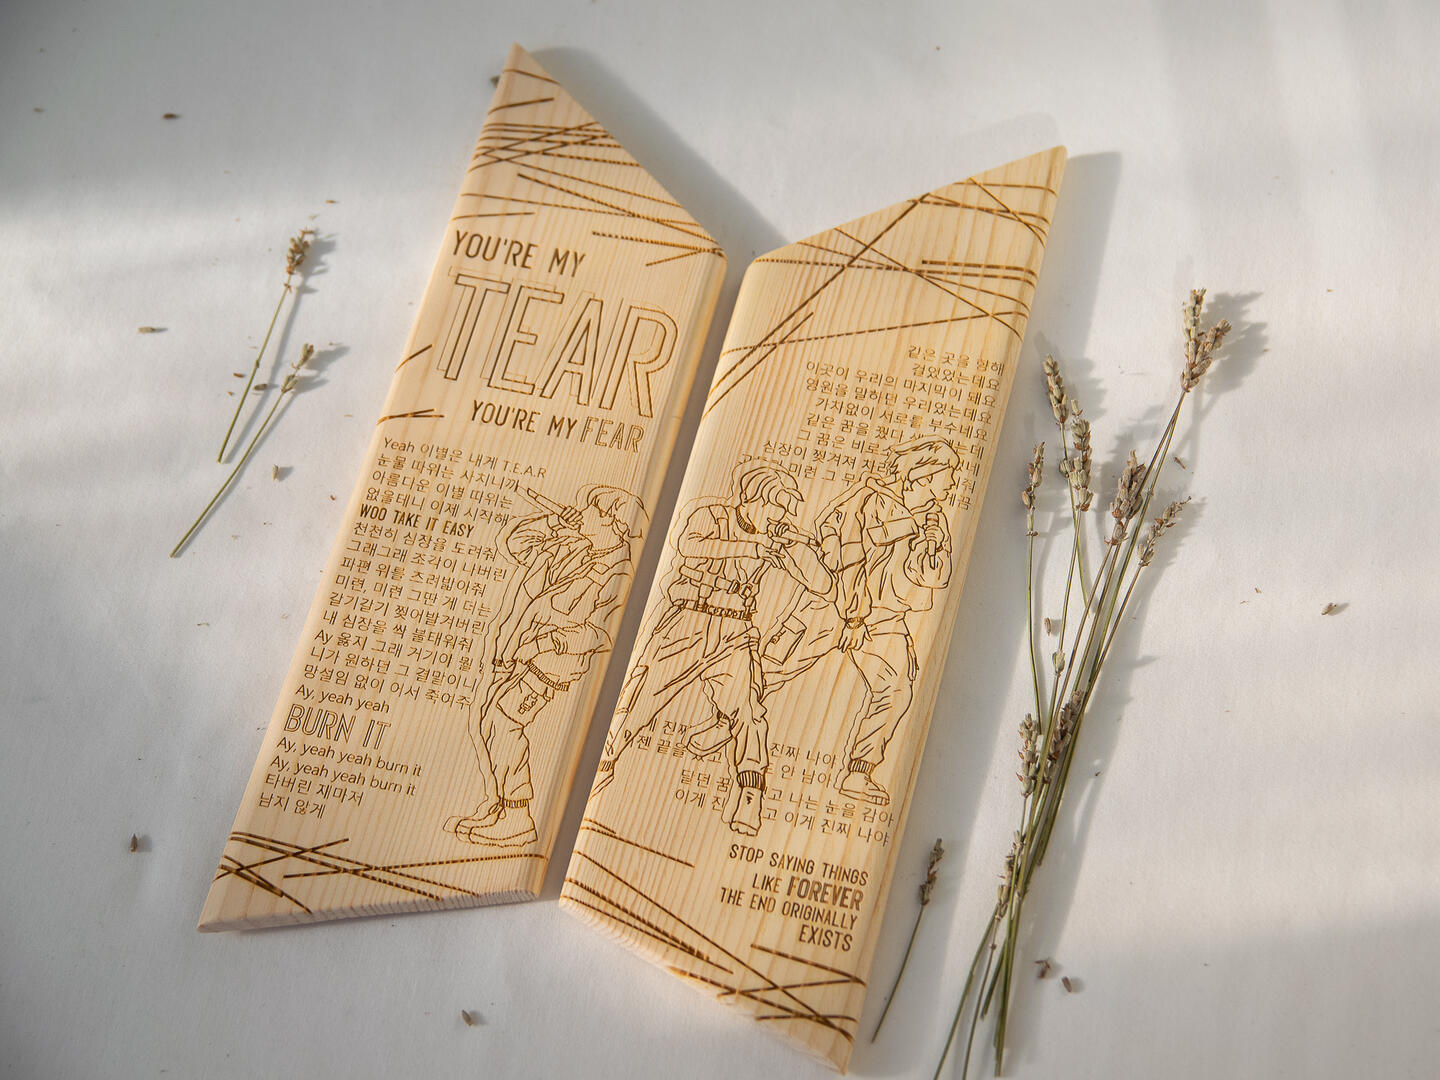 YOU'RE MY
TEAR
YOU'RE MY FEAR
Yeah 이별은 내게 T.E.A.R
눈물 따위는 사치니까
아름다운 이별 따위는
없을테니 이제 시작해
WOO TAKE IT EASY
천천히 심장을 도려줘
그래그래 조각이 나버린
파편 위를 즈러밟아줘
미련, 미련 그딴 게 더는
갈기갈기 찢어발겨버린
내 심장을 싹 불태워줘
Ay 옳지 그래 거기야 뭘
니가 원하던 그 결말이니
망설임 없이 어서 죽이줘
Ay, yeah yeah
BURN IT
Ay, yeah yeah burn it
Ay, yeah yeah burn it
타버린 재마저
남지 않게
같은 곳을 향해
걸었었는데요
이곳이 우리의 마지막이 돼요
영원을 말하던 우리였는데요
가차없이 서로를 부수네요
같은 꿈을 꿨다
그 꿈은 비로소
심장이 찢겨져
미련 그
진짜 나야
안 남아
달던 꿈
고 나는 눈을 감아
이게 진
고 이게 진짜 나야
STOP SAYING THINGS
LIKE FOREVER
THE END ORIGINALLY
EXISTS